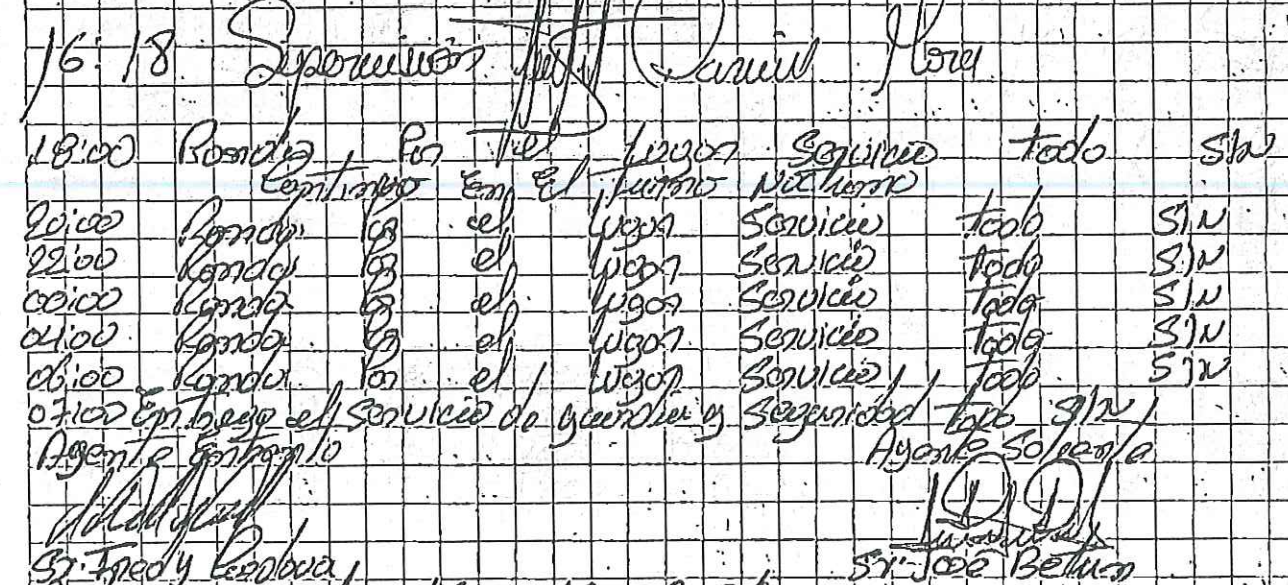 16:18 Supervisión Daniel Mora
18:00 Ronda Por el Lugar Servicio todo S/N
Continuo En El Turno Nocturno
20:00 Ronda Por el Lugar Servicio todo S/N
22:00 Ronda Por el Lugar Servicio todo S/N
00:00 Ronda Por el Lugar Servicio todo S/N
04:00 Ronda Por el Lugar Servicio todo S/N
06:00 Ronda Por el Lugar Servicio todo S/N
07:00 Entrego el Servicio de guardia y Seguridad todo S/N
Agente Entrante Agente Saliente
Sr. Fredy Cordova Sr. José Betun